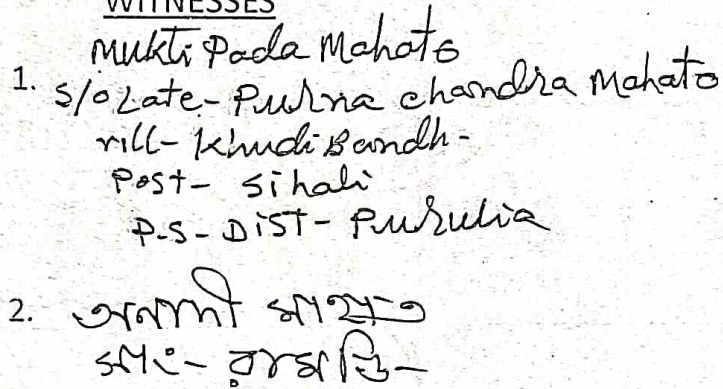 WITNESSES
1. Mukti Pada Mahato
S/o Late- Purna chandra Mahato
vill- Khudi Bandh-
Post- Sihali
P.S- DIST- Purulia
2. অনাদী মাহাত
সাং-